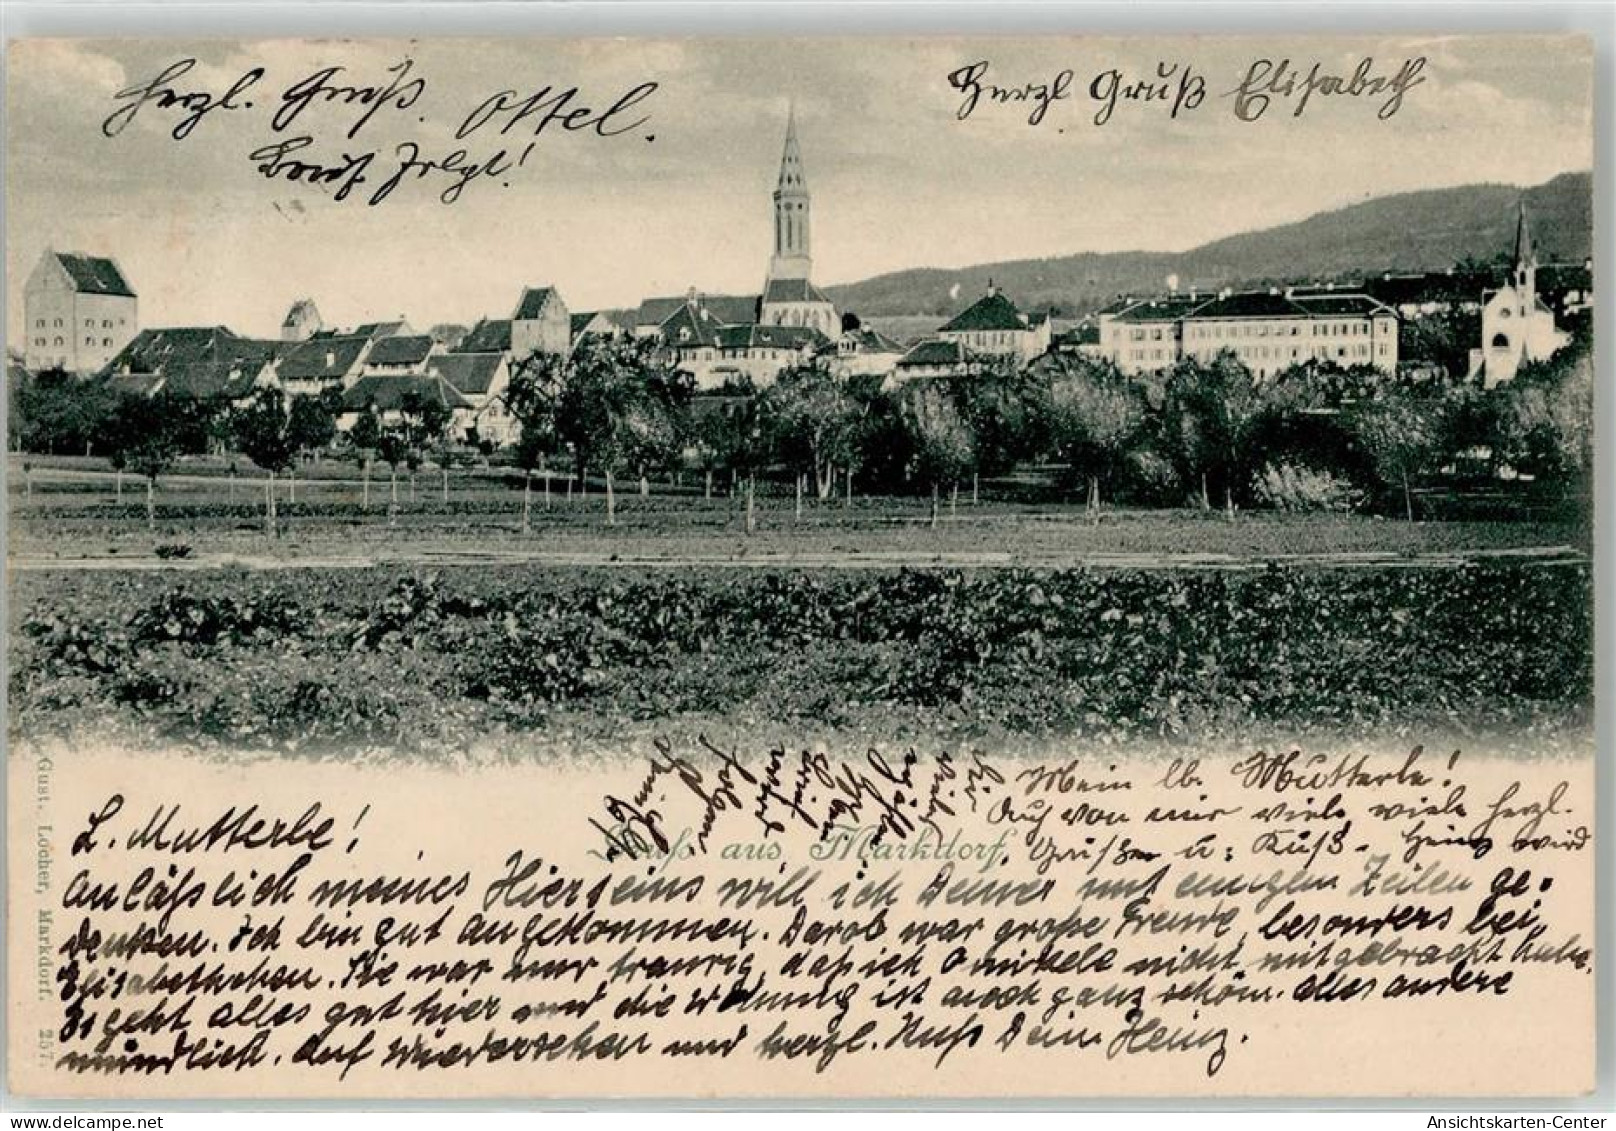 Herzl. Gruß. Ottel.
Brief folgt!
Herzl Gruß Elisabeth
Mein lb. Mutterle!
Auch von mir viele, viele herzl.
Grüße u. Kuß. Heinz wird
Gruß aus Markdorf.
L. Mutterle!
Anläßlich meines Hierseins will ich Deiner mit einigen Zeilen ge-
denken. Ich bin gut angekommen. Darob war große Freude, besonders bei
Elisabethchen. Sie war nur traurig, daß ich nicht mitgebracht habe.
Es geht alles gut hier und die Wohnung ist auch ganz schön. Alles andere
mündlich. Auf Wiedersehen und herzl. Kuß Dein Heinz.
Gust. Locher, Markdorf. 257.
Ansichtskarten-Center